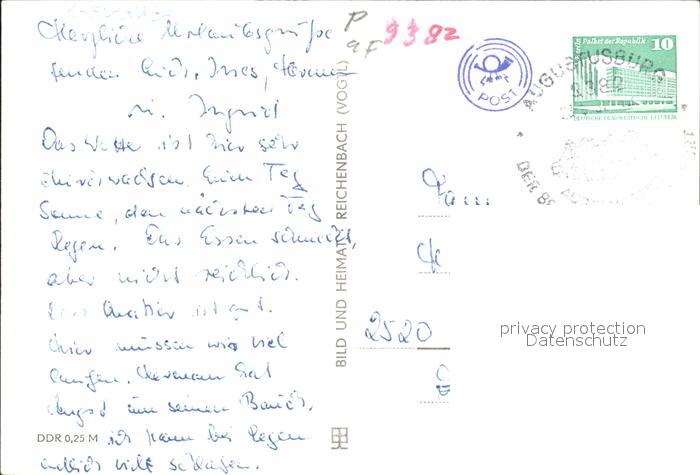 Herzliche Urlaubsgrüße
senden Euch, Ines, Hermann
u. Ingrid
Das Wetter ist hier sehr
durchwachsen. Einen Tag
Sonne, den nächsten Tag
Regen. Das Essen schmeckt,
aber nicht reichlich.
Das Quartier ist gut.
Hier müssen wir viel
laufen. Hermann hat
Angst um seinen Bauch,
ich kann bei Regen
endlich viel schlafen.
DDR 0,25 M
BILD UND HEIMAT REICHENBACH (VOGTL)
P
9382
POST
Berlin, Palast der Republik
10
DEUTSCHE DEMOKRATISCHE REPUBLIK
AUGUSTUSBURG
DER
Fam
2520
privacy protection
Datenschutz